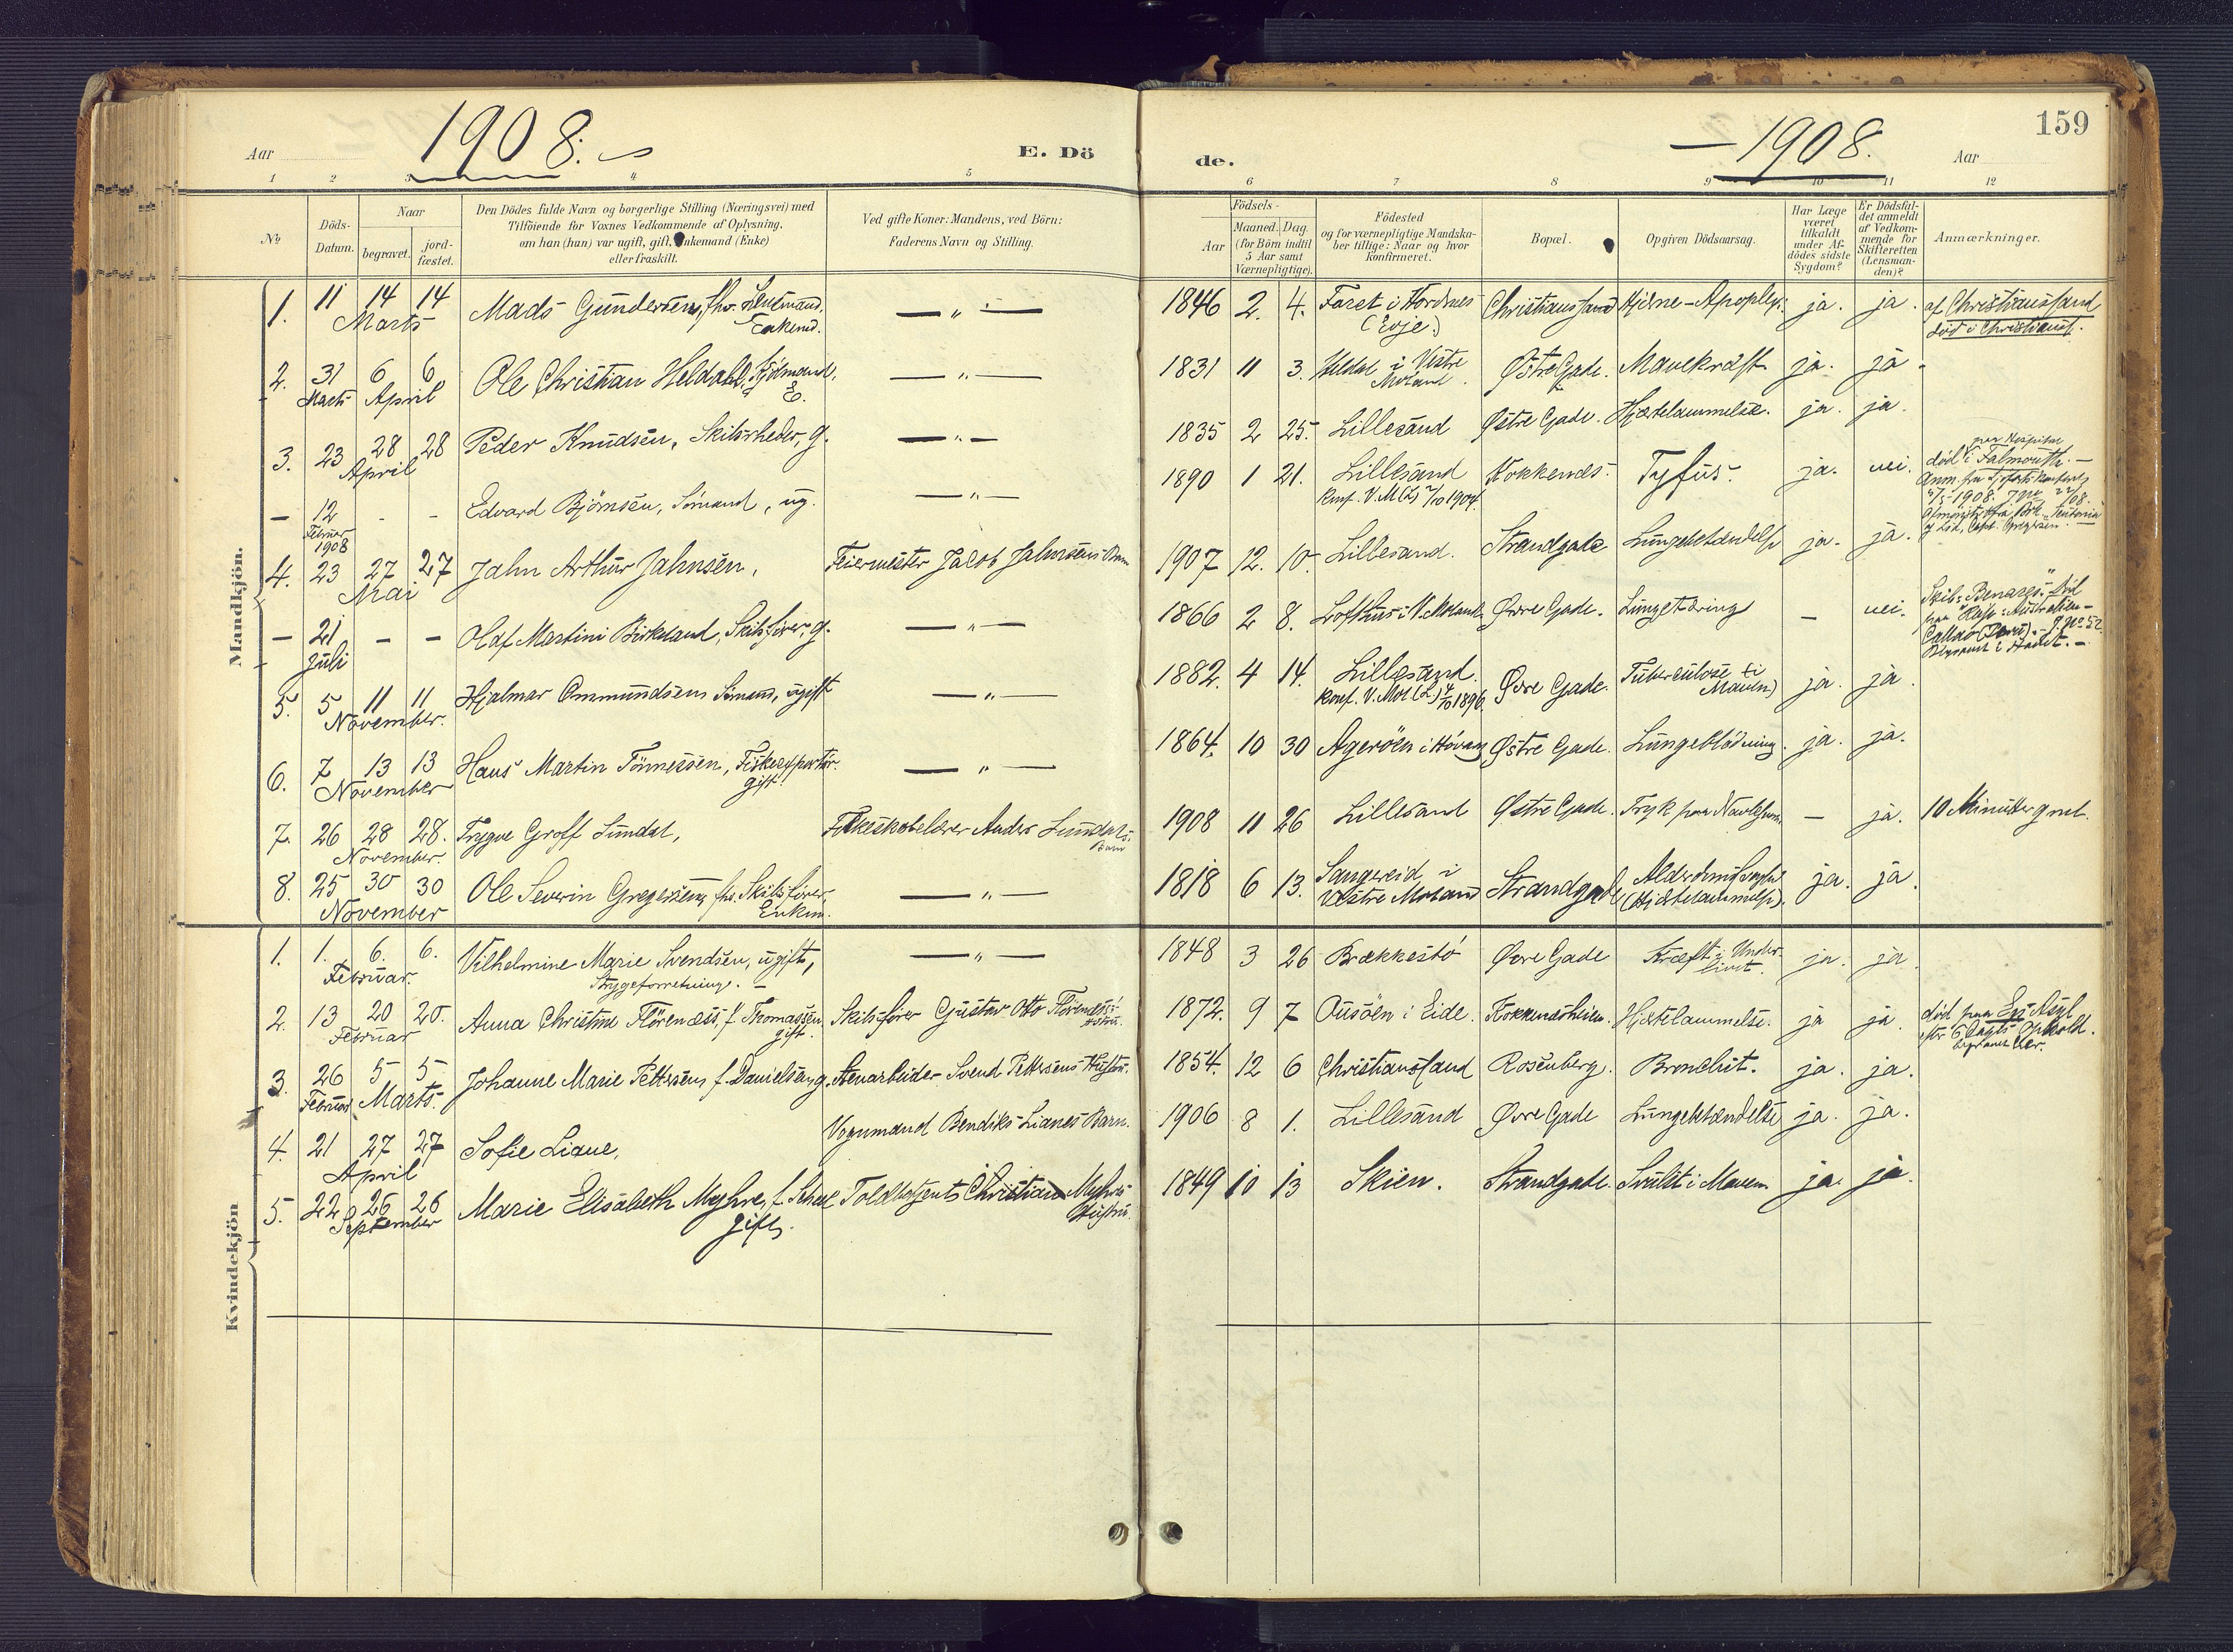 Aar
1908.
E. Dö
de.
1908.
Aar
159
1 2 3 4 5 6 7 8 9 10 11 12
No
Döds-
Datum.
Naar
begravet.
jord-
fæstet.
Den Dödes fulde Navn og borgerlige Stilling (Næringsvei) med
Tilföiende for Voxnes Vedkommende af Oplysning,
om han (hun) var ugift, gift, Enkemand (Enke)
eller fraskilt.
Ved gifte Koner: Mandens, ved Börn:
Faderens Navn og Stilling.
Födsels-
Aar
Maaned. Dag.
(for Börn indtil
5 Aar samt
Værnepligtige).
Födested
og for værnepligtige Mandska-
ber tillige: Naar og hvor
konfirmeret.
Bopæl.
Opgiven Dödsaarsag.
Har Læge
været
tilkaldt
under Af-
dödes sidste
Sygdom?
Er Dödsfal-
det anmeldt
af Vedkom-
mende for
Skifteretten
(Lensman-
den)?
Anmærkninger.
Mandkjön.
1. 11 14 14 Mads Gundersen, fhv. Lensmand, — „ — 1846 2. 4. Faret i Hordnes Christianssand Hjerne-Apoplexi. ja. ja. af Christianssand
Marts Enkemd. (Evje.) död i Christianss.
2. 31 6 6 Ole Christian Heldahl, — „ — 1831 11 3. Heldal i Vestre Østre Gade. Mavekræft ja. ja.
Marts April E. Moland.
3. 23 28 28 Peder Knudsen, Skibsrheder, g. — „ — 1835 2 25. Lillesand Østre Gade. Hjertelammelse. ja. ja.
April
— 12 - - Edvard Björnsen, Sömand, ug. — „ — 1890 1 21. Lillesand Kokkenes. Tyfus. ja. nei. paa Hospital
Februar
1908
Konf. V. M. (L) 2/10 1904.
död i Falmouth. —
4. 23 27 27 Jahn Arthur Jahnsen, Feiermester Jacob Jahnsens Barn 1907 12. 10. Lillesand. Strandgade Lungebetændelse ja. ja.
Mai
— 21 — — Olaf Martini Birkeland, Skibsförer, g. — „ — 1866 2 8. Lofthus i V. Moland Øvre Gade. Lungetæring — nei. Skib: "Benares" död
Juli
paa Rejse: Australien-
Callao (Peru).
5. 5 11 11 Hjalmar Ommundsen Sömand, ugift — „ — 1882. 4 14. Lillesand. Øvre Gade. Tuberculose (i ja. ja.
November. Konf. V. Mol (L) 4/10 1896. Maven)
6. 7 13 13 Hans Martin Tönnessen, Fiskexportör. — „ — 1864. 10 30 Ageröen i Hövaag Østre Gade. Lungeblödning. ja. ja.
November gift.
7. 26 28 28. Trygve Groff Sundal, Folkeskolelærer Anders Sundals 1908 11 26 Lillesand Østre Gade. Tryk paa Navlesnor. — ja. 10 Minutter gml.
November. Barn
8. 25 30 30 Ole Severin Gregersen, fhv. Skibsförer, — „ — 1818 6 13. Sangereid i Strandgade ja. ja.
November Enkem. Vestre Moland (Hjertelammelse).
Kvindekjön
1. 1. 6. 6. Vilhelmine Marie Svendsen, ugift, — „ — 1848 3 26 Brækkestö Øvre Gade Kræft i Under- ja. ja.
Februar. Strygeforretning. — livet.
2. 13 20 20. Anna Christine Flörenæss, f. Thomassen Skibsförer Gustav Otto Florenæss' 1872. 9 7 Ousöen i Eide. Kokkenæsheien. Hjertelammelse. ja ja. död paa Eg Asyl
Februar gift. Hustru. efter 6 Dages Ophold.
begravet her.
3. 26 5 5 Johanne Marie Pettersen, f. Danielsen, g. Stenarbeider Svend Pettersens Hustru. 1854. 12 6 Christianssand Rosenberg. Bronchit. ja. ja.
Februar Marts.
4. 21 27 27 Sofie Liane, Vognmand Bendiks Lianes Barn. 1906 8 1. Lillesand Øvre Gade Lungebetændelse ja. ja.
April
5. 22 26 26 Marie Elisabeth Myhre, f. Toldbetjent Christian Myhres 1849 10 13 Skien. Strandgade. Svulst i Maven ja. ja.
September gift. Hustru.